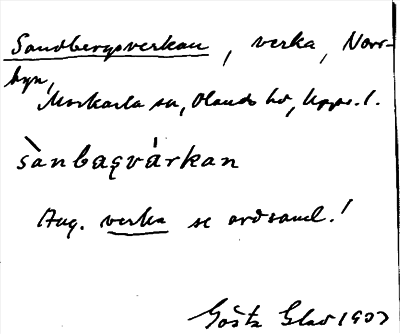 Sandbergsverkan, verka, Norr-
byn,
Morkarla sn, Olands hd, Upps. l.
sànbaǥvárkan
Ang. verka se ordsaml.!
Gösta Glad 1937